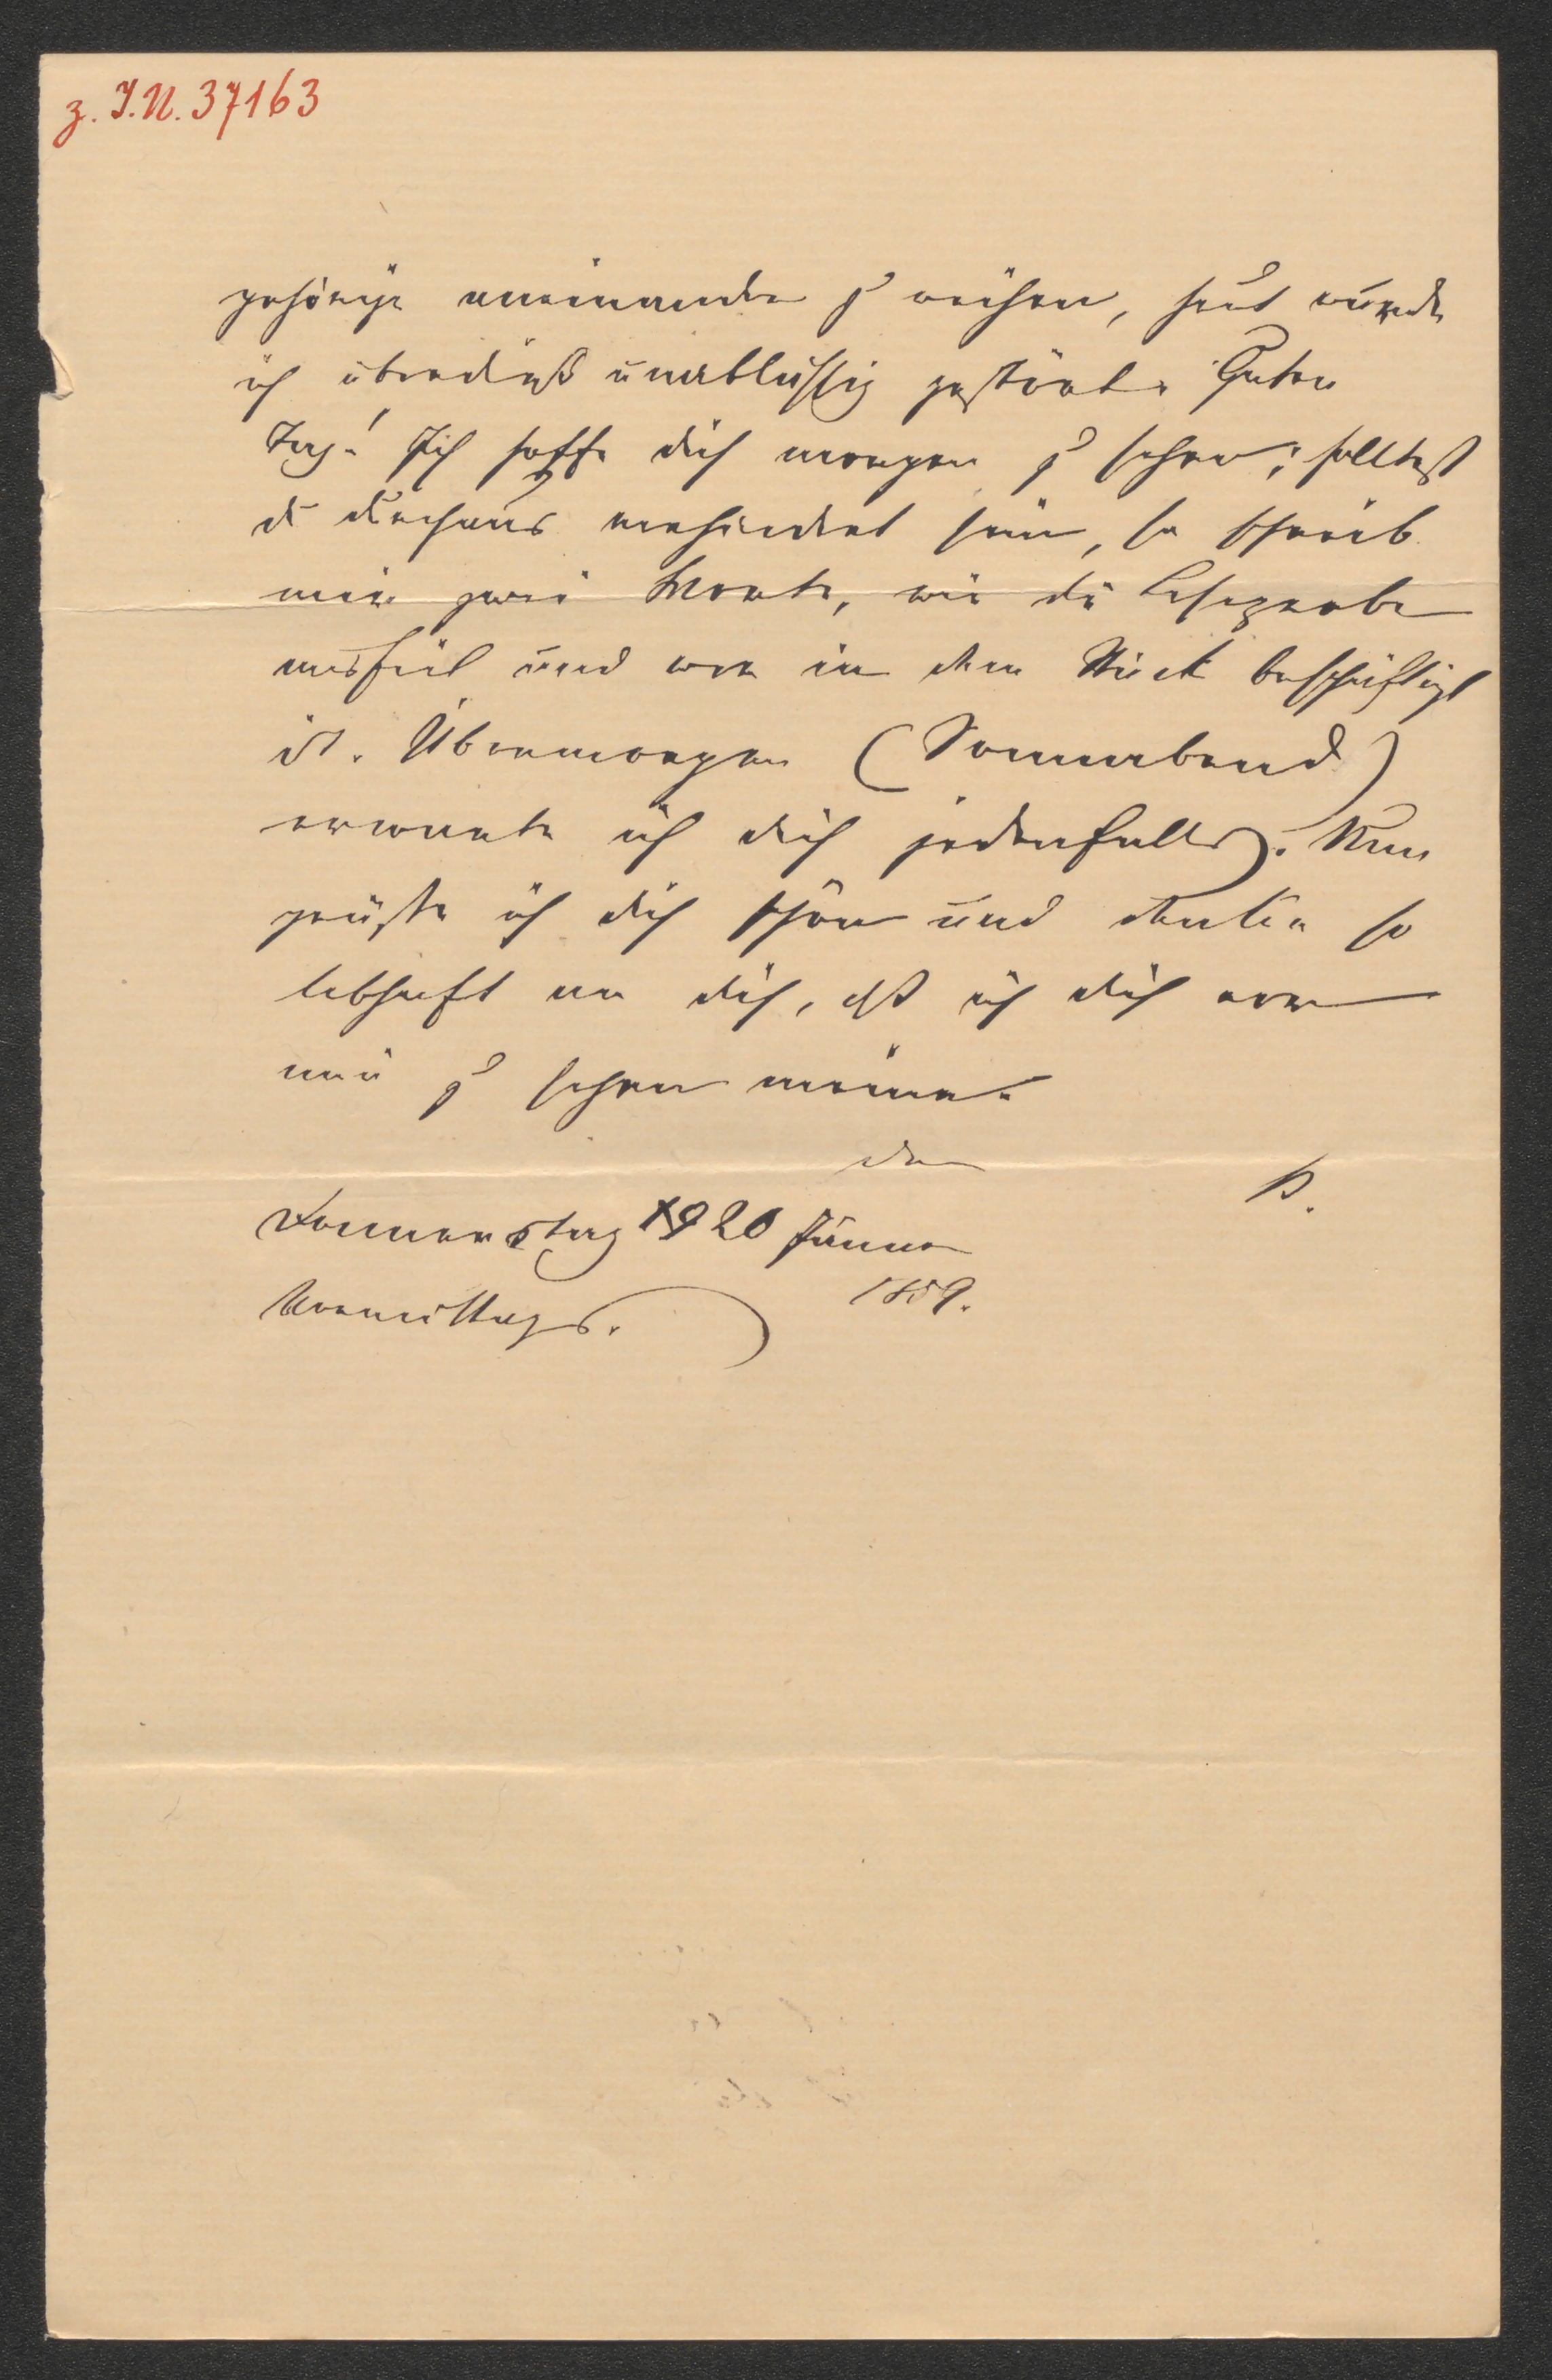 z. I.N. 37163
gehörig aneinander z' reihen, heut wurde
ich überdieß unabläßig gestört. Guten
Tag! Ich hoffe dich morgen z' sehen; solltest
du durchaus verhindert sein, so schreib
mir zwei Worte, wie die Leseprobe
ausfiel und wer in dem Stück beschäftigt
ist. Übermorgen (Sonnabend)
erwarte ich dich jedenfalls. Nun
grüße ich dich schön und denke so
lebhaft an dich, dß ich dich vor
mir z' sehen meine.
den
Donnerstag 20 Jänner
1859.
Vormittags.